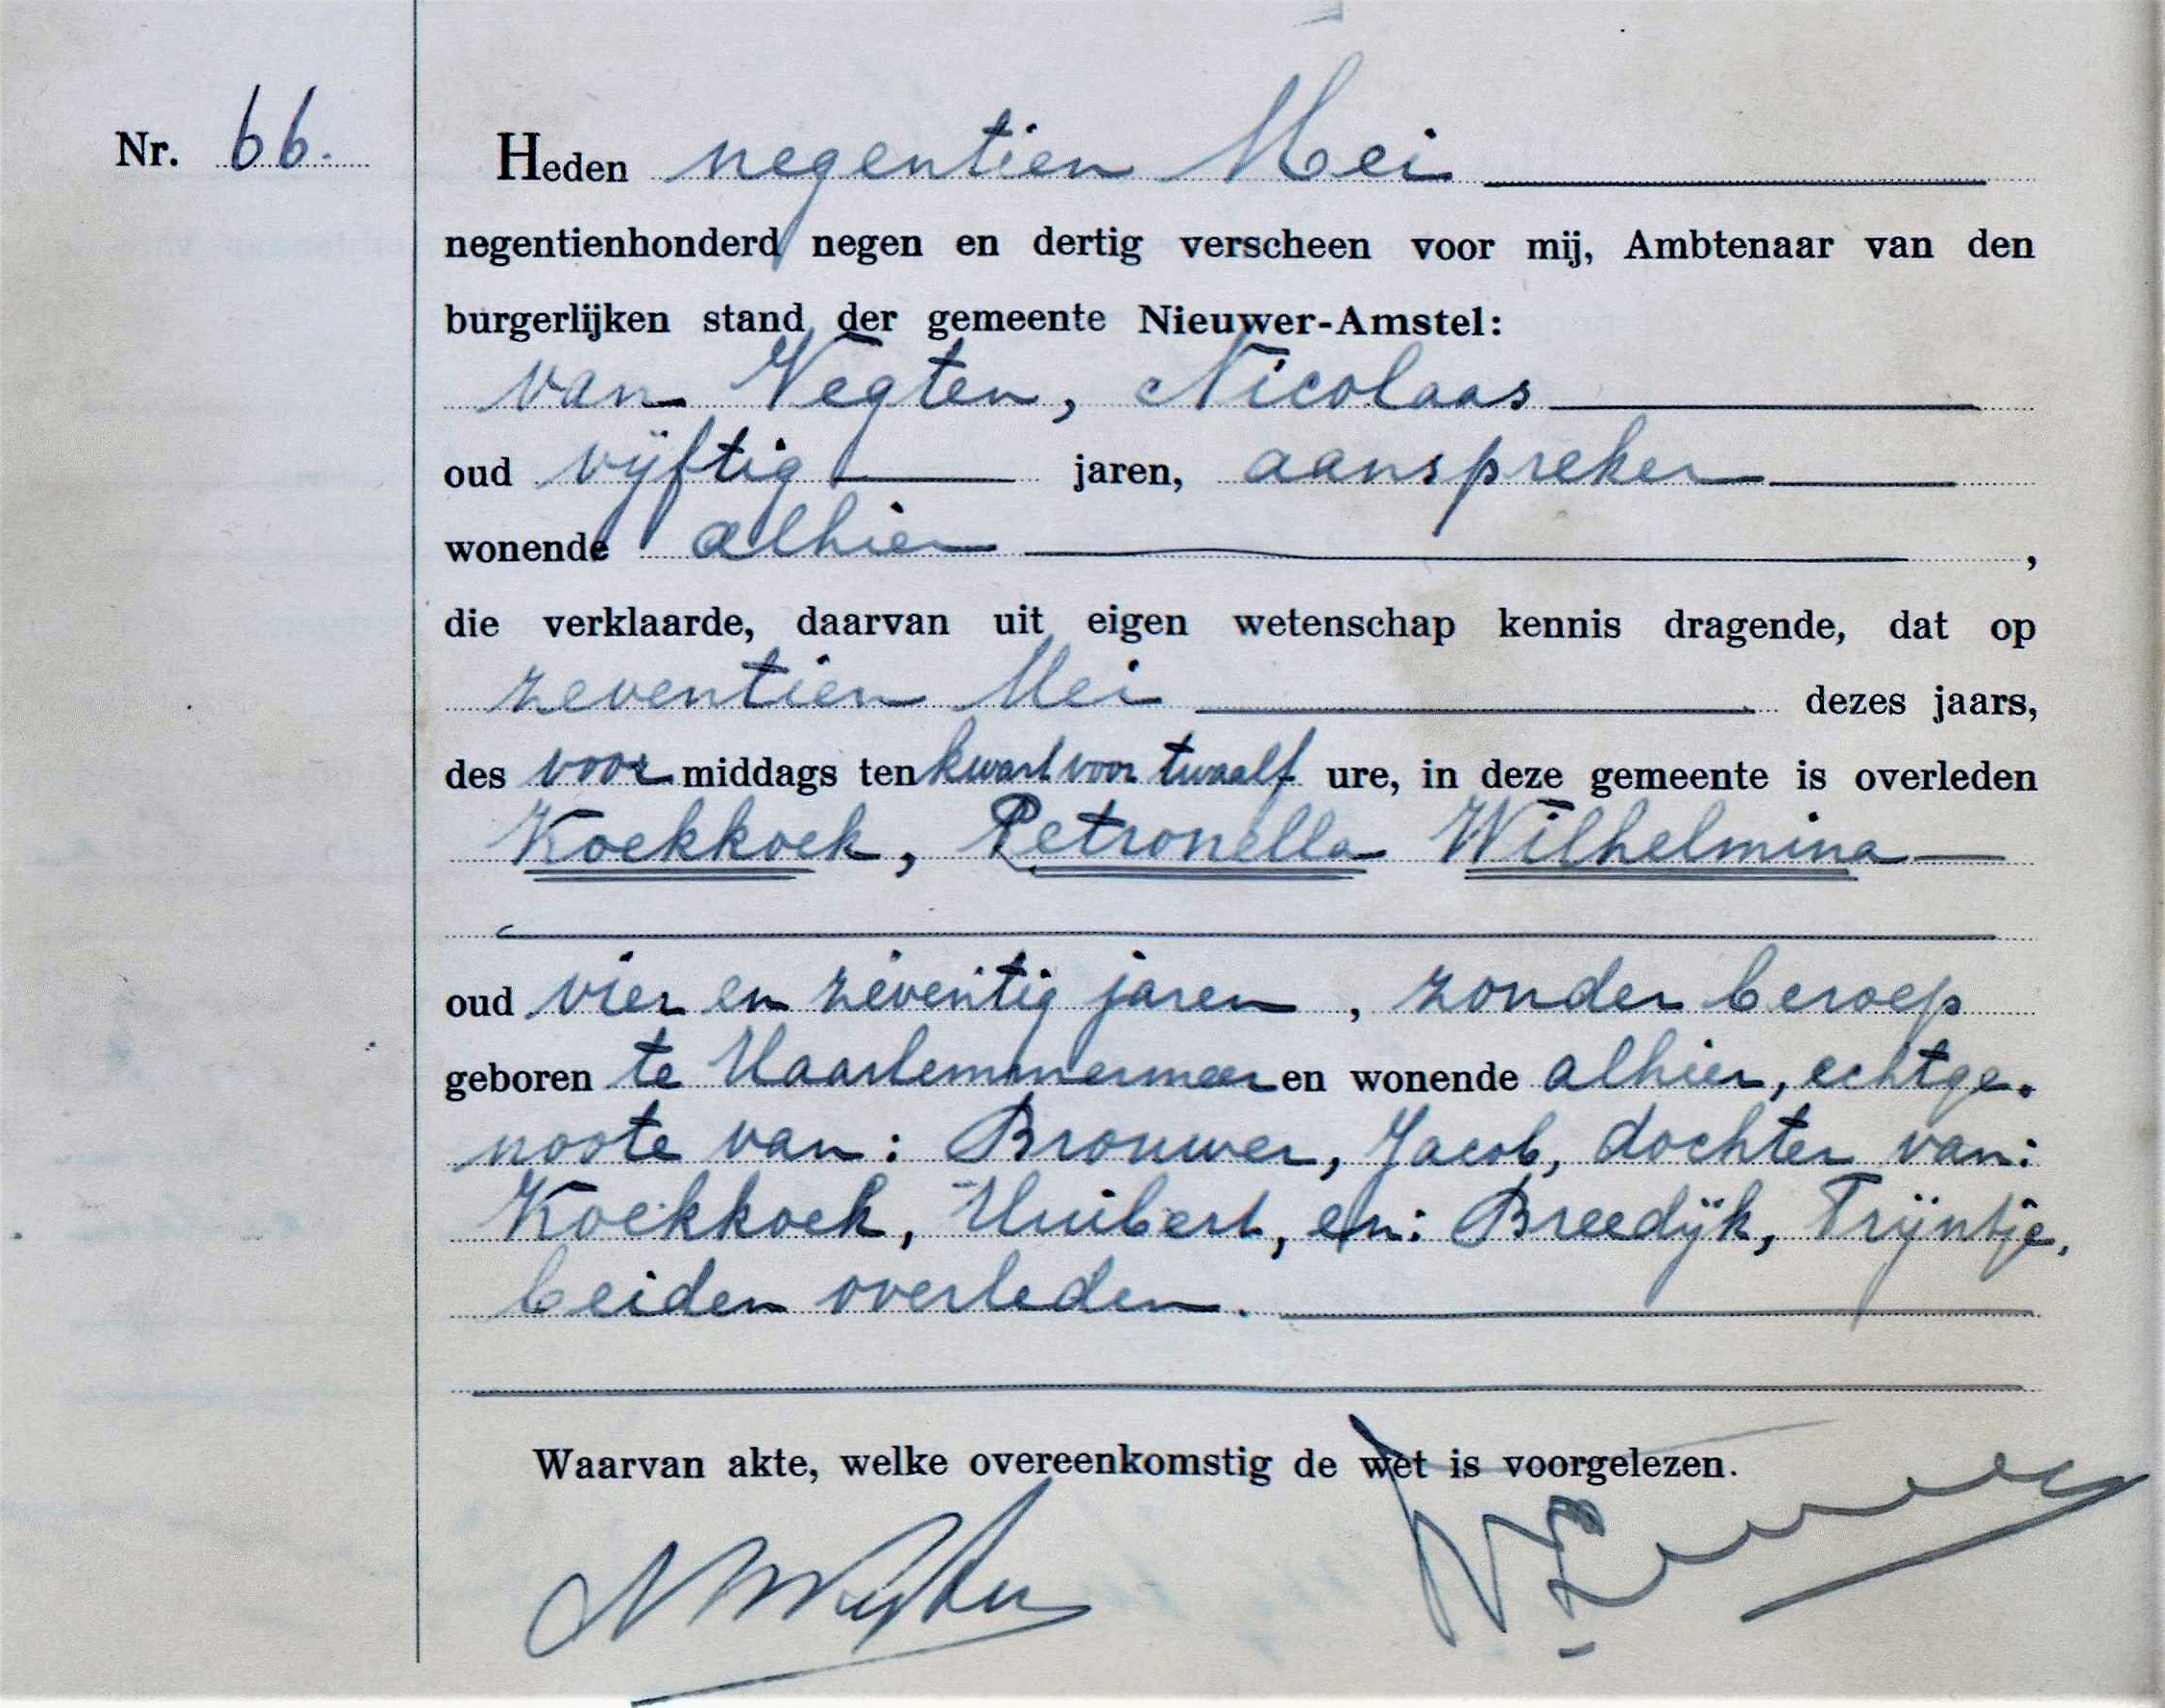 Nr. 66.
Heden negentien Mei
negentienhonderd negen en dertig verscheen voor mij, Ambtenaar van den
burgerlijken stand der gemeente Nieuwer-Amstel:
van Vegten, Nicolaas
oud vijftig jaren, aanspreker
wonende alhier ,
die verklaarde, daarvan uit eigen wetenschap kennis dragende, dat op
zeventien Mei dezes jaars,
des voor middags ten kwart voor twaalf ure, in deze gemeente is overleden
Koekkoek, Petronella Wilhelmina
oud vier en zeventig jaren , zonder beroep
geboren te Haarlemmermeer en wonende alhier, echtge-
noote van: Brouwer, Jacob, dochter van:
Koekkoek, Huibert, en: Breedijk, Trijntje,
beiden overleden.
Waarvan akte, welke overeenkomstig de wet is voorgelezen.